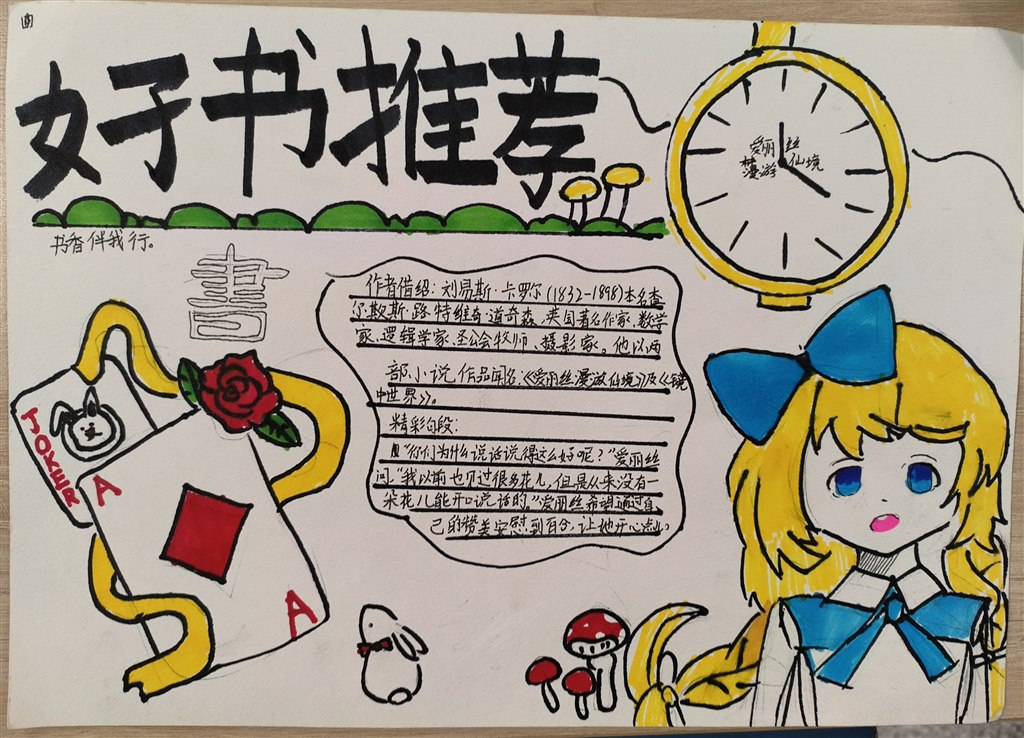 好书推荐
爱丽丝
梦漫游仙境
书香伴我行。
書
作者借绍：刘易斯·卡罗尔(1832-1898)本名查
尔斯·路特维奇·道奇森、英国著名作家、数学
家、逻辑学家、圣公会牧师、摄影家。他以两
部小说作品闻名:《爱丽丝漫游仙境》及《镜
中世界》。
精彩句段:
"你们为什么说话说得这么好呢？"爱丽丝
问"我以前也见过很多花儿,但是从来没有一
朵花儿能开口说话的。"爱丽丝希望通过自
己的赞美安慰到百分,让她开心点儿。
JOKER
A
A